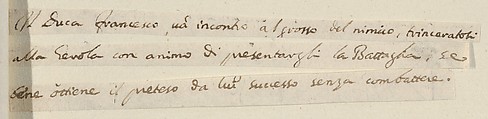 Il Duca Francesco, và incontro al grosso del nimico, trinceratosi
alla Gevola con animo di presentargli la Battaglia, se
bene ottiene il preteso da lui successo senza combattere.